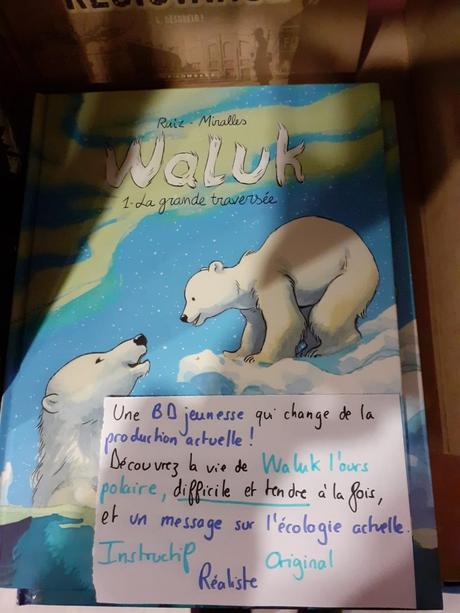 RÉSISTANCE
4. DÉSOBÉIR !
Ruiz - Miralles
Waluk
1-La grande traversée
Une BD jeunesse qui change de la
production actuelle !
Découvrez la vie de Waluk l'ours
polaire, difficile et tendre à la fois,
et un message sur l'écologie actuelle.
Instructif Original
Réaliste